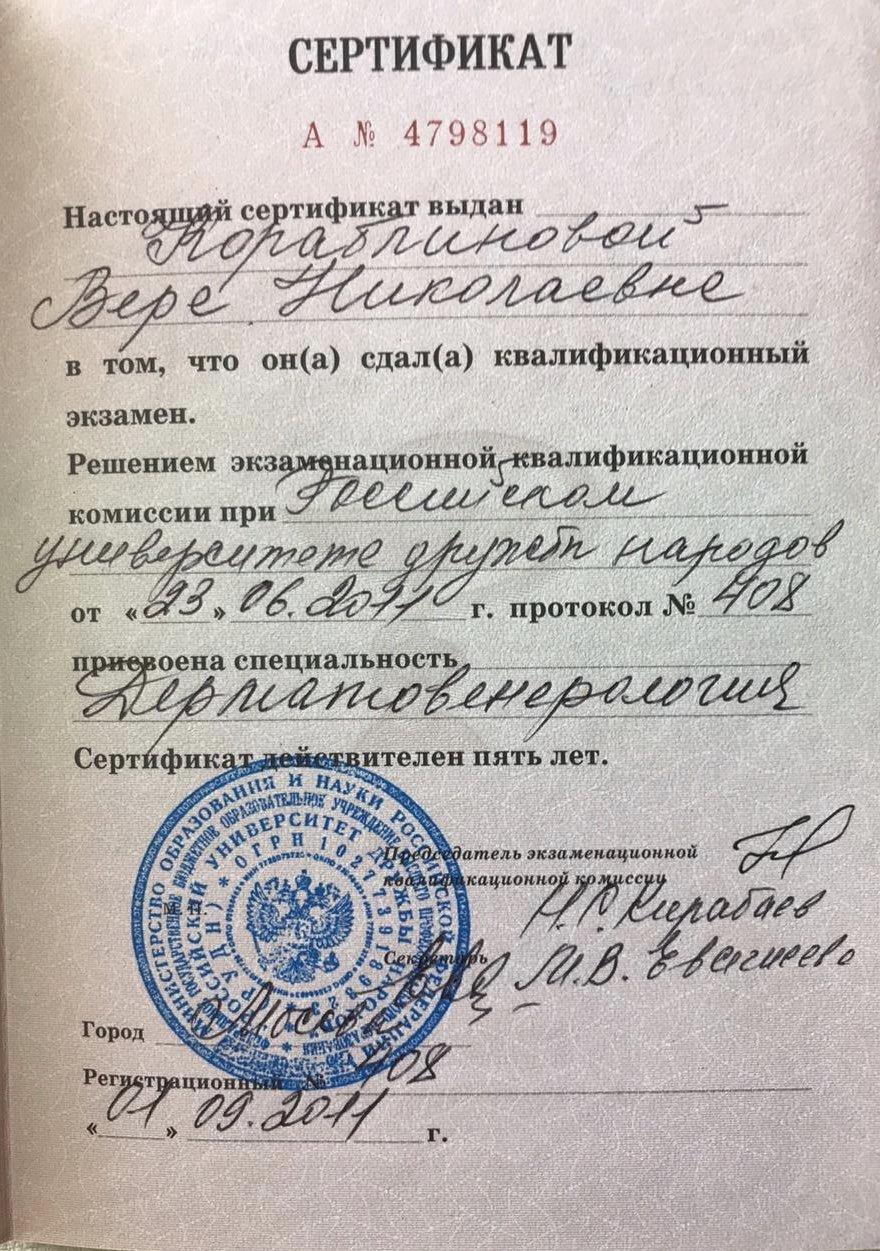 СЕРТИФИКАТ
А № 4798119
Настоящий сертификат выдан
Кораблиновой
Вере Николаевне
в том, что он(а) сдал(а) квалификационный
экзамен.
Решением экзаменационной квалификационной
комиссии при Российском
университете дружбы народов
от «23» 06.2011 г. протокол № 408
присвоена специальность
Дерматовенерология
Сертификат действителен пять лет.
МИНИСТЕРСТВО ОБРАЗОВАНИЯ И НАУКИ РОССИЙСКОЙ ФЕДЕРАЦИИ
РОССИЙСКИЙ УНИВЕРСИТЕТ ДРУЖБЫ НАРОДОВ
(РУДН) * ОГРН 1027739189323
Председатель экзаменационной
квалификационной комиссии
Н.С. Кирабаев
М.П.
Секретарь М.В.
Город Москва
Регистрационный № 408
«01» 09.2011 г.